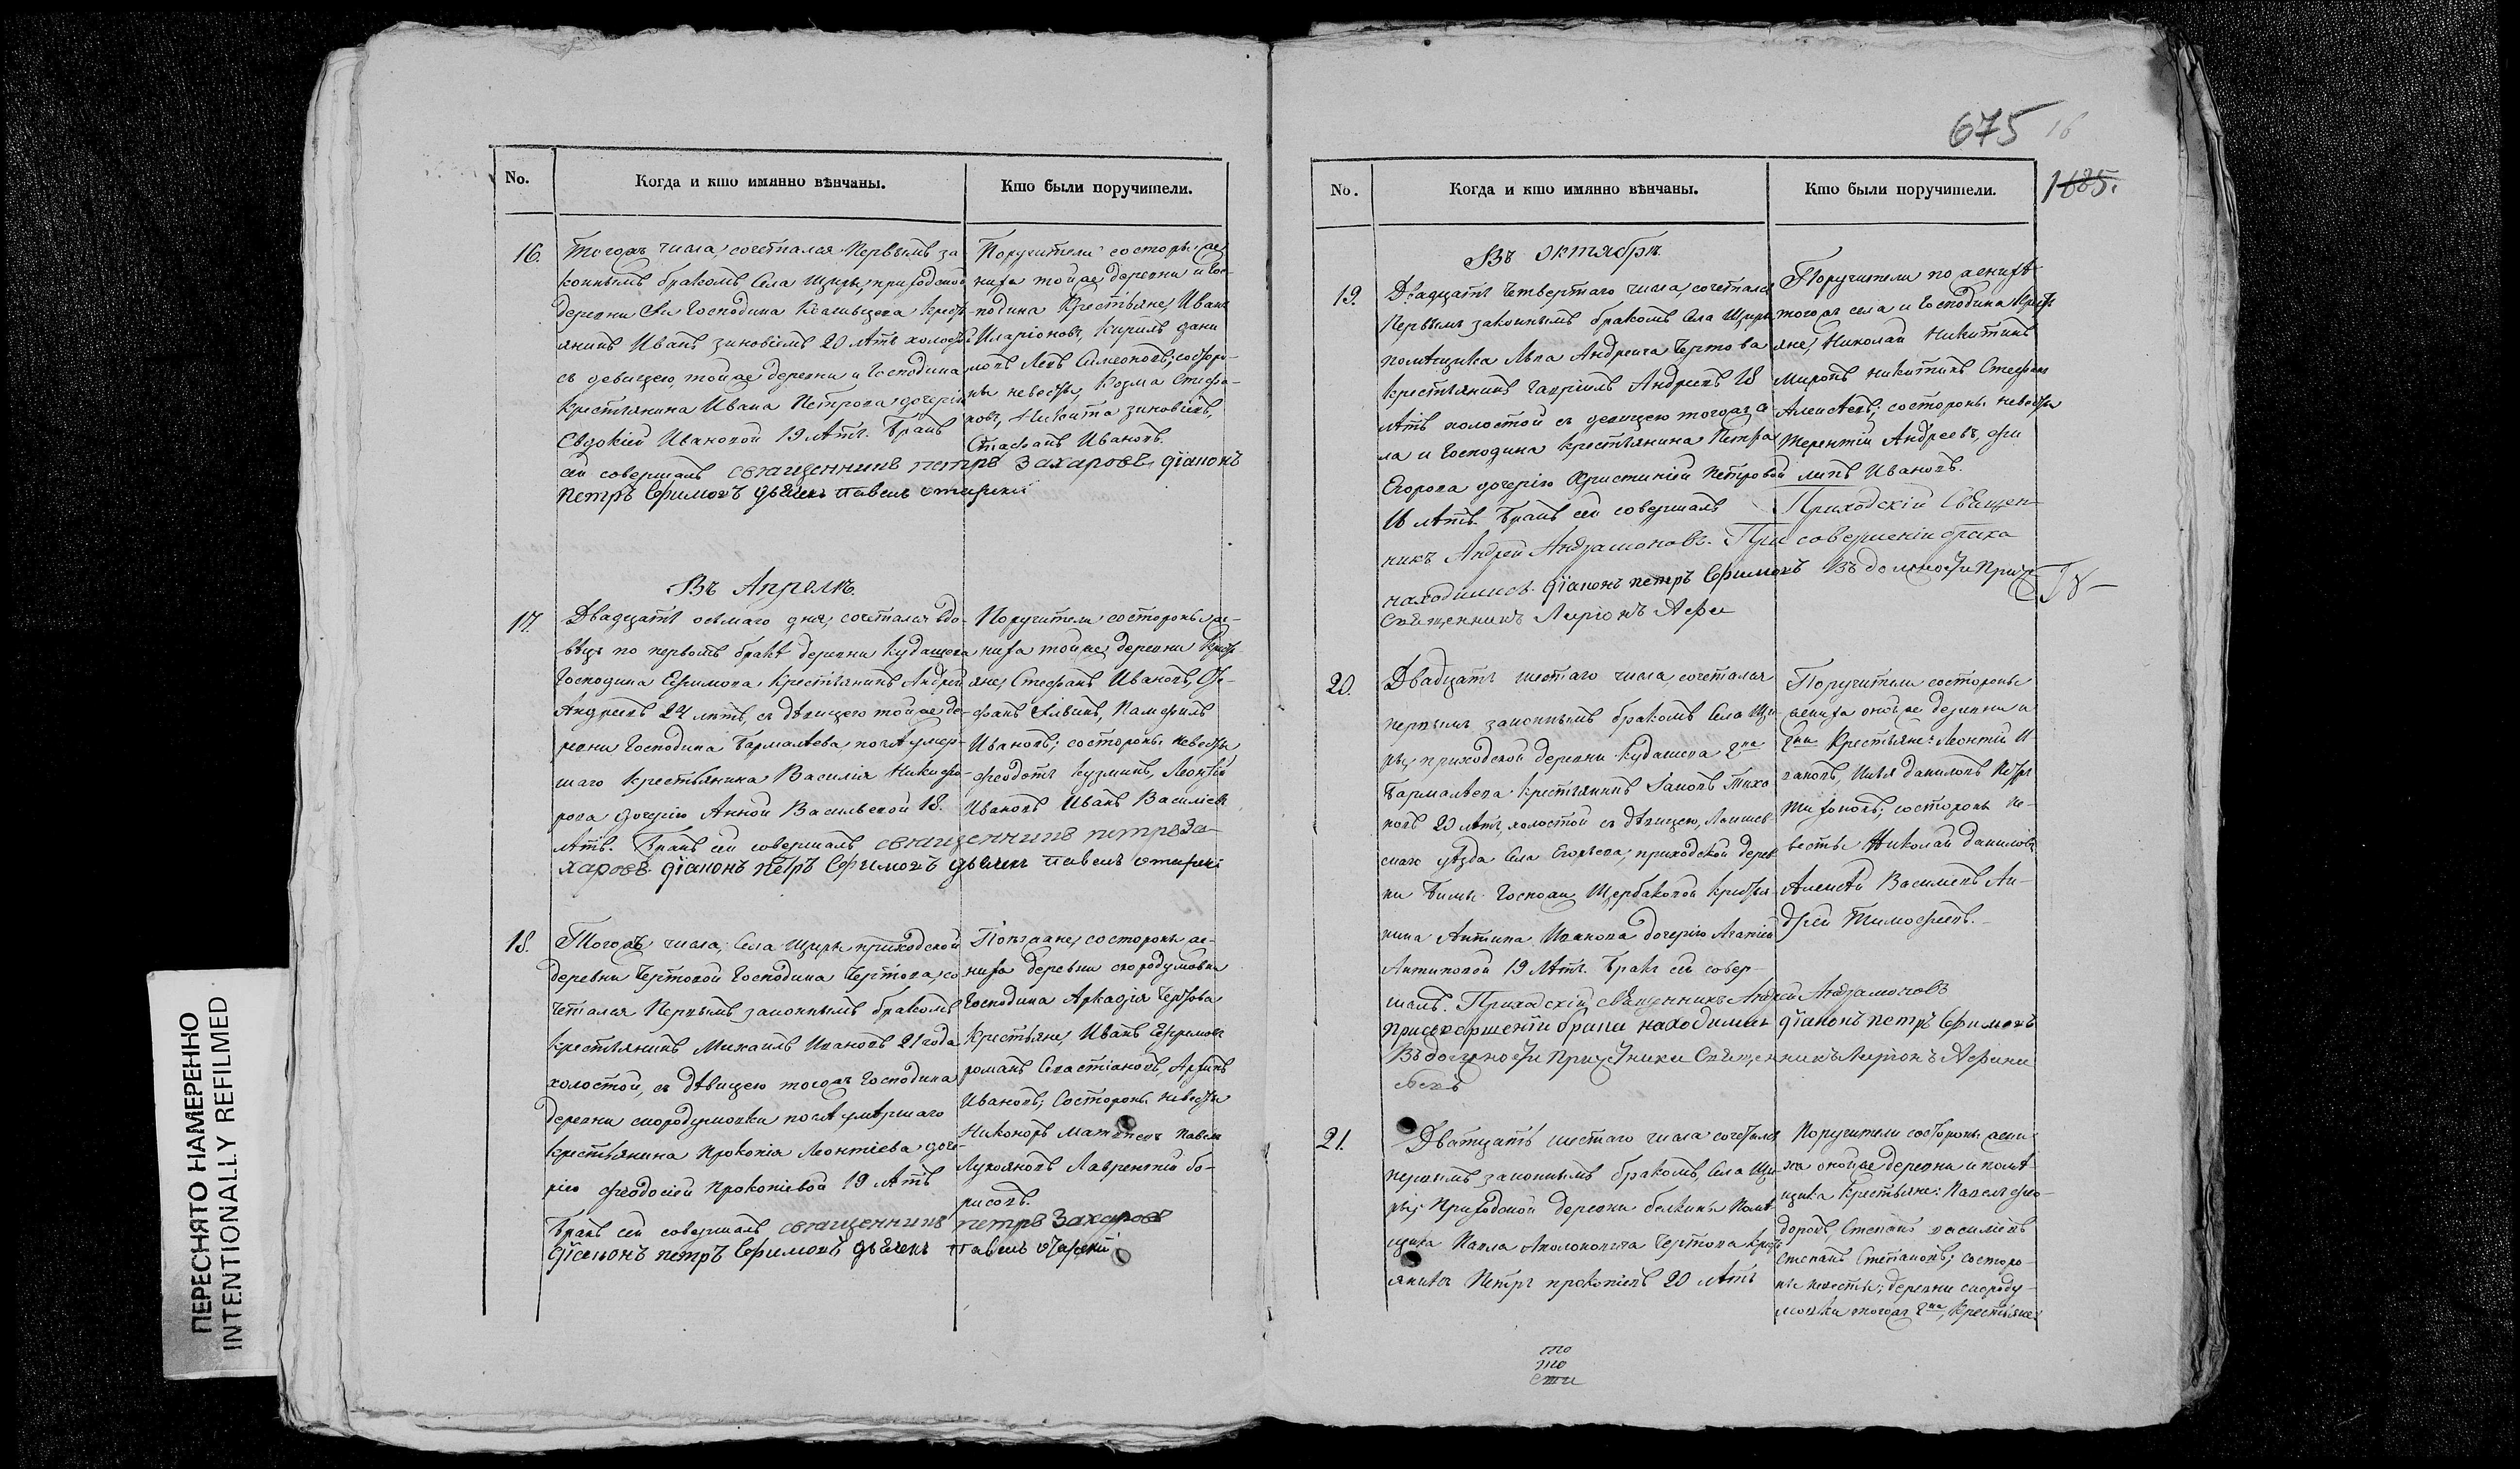 No.
Когда и кто имянно вѣнчаны.
Кто были поручители.
16.
Тогожъ числа, сочетался Первымъ за
коннымъ бракомъ Села Щиры, приходской
деревни Господина крестъ
янинъ Иванъ Зиновіевъ 20 лѣтъ холостъ
съ девицею, тойже деревни и Господина
Крестьянина Ивана Петрова дочерію
Ивановой 19 лѣтъ. Бракъ
сей совершалъ священникъ петръ Захаровъ діаконъ
петръ Ефимовъ дьячекъ павелъ
Поручители состороны же
ниха тойже деревни и Гос-
подина Крестьяне, Иванъ
Иларіоновъ, Кирилъ Дани
ловъ Левъ Симеоновъ; со сторо-
ны невесты, Козма Стефа-
новъ, Никита Зиновіевъ,
Стефанъ Ивановъ.
Въ Апрелѣ.
17.
Двадцать осьмаго дня, сочетался вдо-
вецъ по первомъ бракѣ деревни Кудашева
Господина Ефимова Крестьянинъ Андрей
Андреевъ 24 лѣтъ, съ дѣвицею тойже де-
ревни Господина Бармалѣева, послѣ умер-
шаго Крестьянина Василія Никифо-
рова дочерію Анной Васильевой 18.
лѣтъ. Бракъ сей совершалъ священникъ петръ За-
харовъ. діаконъ петръ Ефимовъ дьячекъ павелъ
Поручители состороны же-
ниха тойже деревни Крестъ
яне, Стефанъ Ивановъ,
фанъ Памфилъ
Ивановъ; состороны невесты
Феодотъ Кузминъ, Леонтій
Ивановъ Иванъ Василіев
18.
Тогожъ числа, Села Щиры приходской
деревни Чертовой Господина Чертова, со
четался Первымъ законнымъ бракомъ
крестьянинъ Михаилъ Ивановъ 21 года
холостой, съ дѣвицею тогожъ Господина
деревни скородумовки послѣ умѣршаго
Крестьянина Прокопія Леонтіева доче-
рію Феодосіей Прокопіевой 19 лѣтъ
Бракъ сей совершалъ священникъ петръ Захаровъ
діаконъ петръ Ефимовъ дьячекъ павелъ
Поезжане, состороны же-
ниха деревни скородумовки
Господина Аркадія Чертова
Крестьяне, Иванъ Ефимовъ
романъ Севастіановъ, Архипъ
Ивановъ; Состороны невесты
Никоноръ Матвеевъ Павелъ
Лукояновъ Лаврентій бо-
рисовъ.
675
16
1685.
No.
Когда и кто имянно вѣнчаны.
Кто были поручители.
Въ Октябрѣ.
19.
Двадцать Четвертаго числа, сочетался
Первымъ законнымъ бракомъ Села Щиры,
помѣщика Льва Андреича Чертова
крестьянинъ Гавріилъ Андреевъ 18
лѣтъ холостой съ девицею тогожъ се
ла и Господина Крестьянина Петра
Егорова дочерію Христиніей Петровой
лѣтъ. Бракъ сей совершалъ Приходскій Священ-
никъ Андрей Андрамоновъ. При совершеніи брака
находились діаконъ петръ Ефимовъ Въ должности
Священникъ
Поручители по женихѣ
тогожъ села и Господина Крестъ
яне, Николай Никитинъ
Миронъ Никитинъ Стефанъ
Алексѣевъ; состороны невесты
Терентій Андреевъ, Фи
липъ Ивановъ.
20.
Двадцать шестаго числа, сочетался
первымъ законнымъ бракомъ Села Щи-
ры, приходской деревни Кудашева Гна
Бармалѣева крестьянинъ Іаковъ Тихо
новъ 20 лѣтъ, холостой съ дѣвицею, Лаишев-
скаго уѣзда Села Егорьева, приходской дерев
ни Госпожи Щербаковой Крестья-
нина Антипа Иванова дочерію Агапіей
Антиповой 19 лѣтъ. Бракъ сей совер-
шалъ. Приходскій священникъ Андрей Андрамоновъ
присовершеніи брака находились діаконъ петръ Ефимовъ
Въ должности Причетника Священникъ
Поручители состороны
жениха онойже деревни и
Гна Крестьяне: Леонтій И-
вановъ, Илья Даниловъ Петръ
Тихоновъ; состороны не-
весты Николай Даниловъ
Алексѣй Василіевъ Ан-
дрей Тимофеевъ.
21.
Дватцать шестаго числа сочетался
первымъ законнымъ бракомъ, Села Щи
ры, Приходской деревни белкины Помѣ
щика Павла Аполоновича Чертова Крестъ
янинъ Петръ прокопіевъ 20 лѣтъ
Поручители состороны жени
ха онойже деревни и помѣ-
щика Крестьяне: Павелъ Фео-
доровъ, Степанъ василіевъ
Степанъ Степановъ; состоро-
ны невесты; деревни скороду-
мовки тогожъ Гна, Крестьяне:
ПЕРЕСНЯТО НАМЕРЕННО
INTENTIONALLY REFILMED